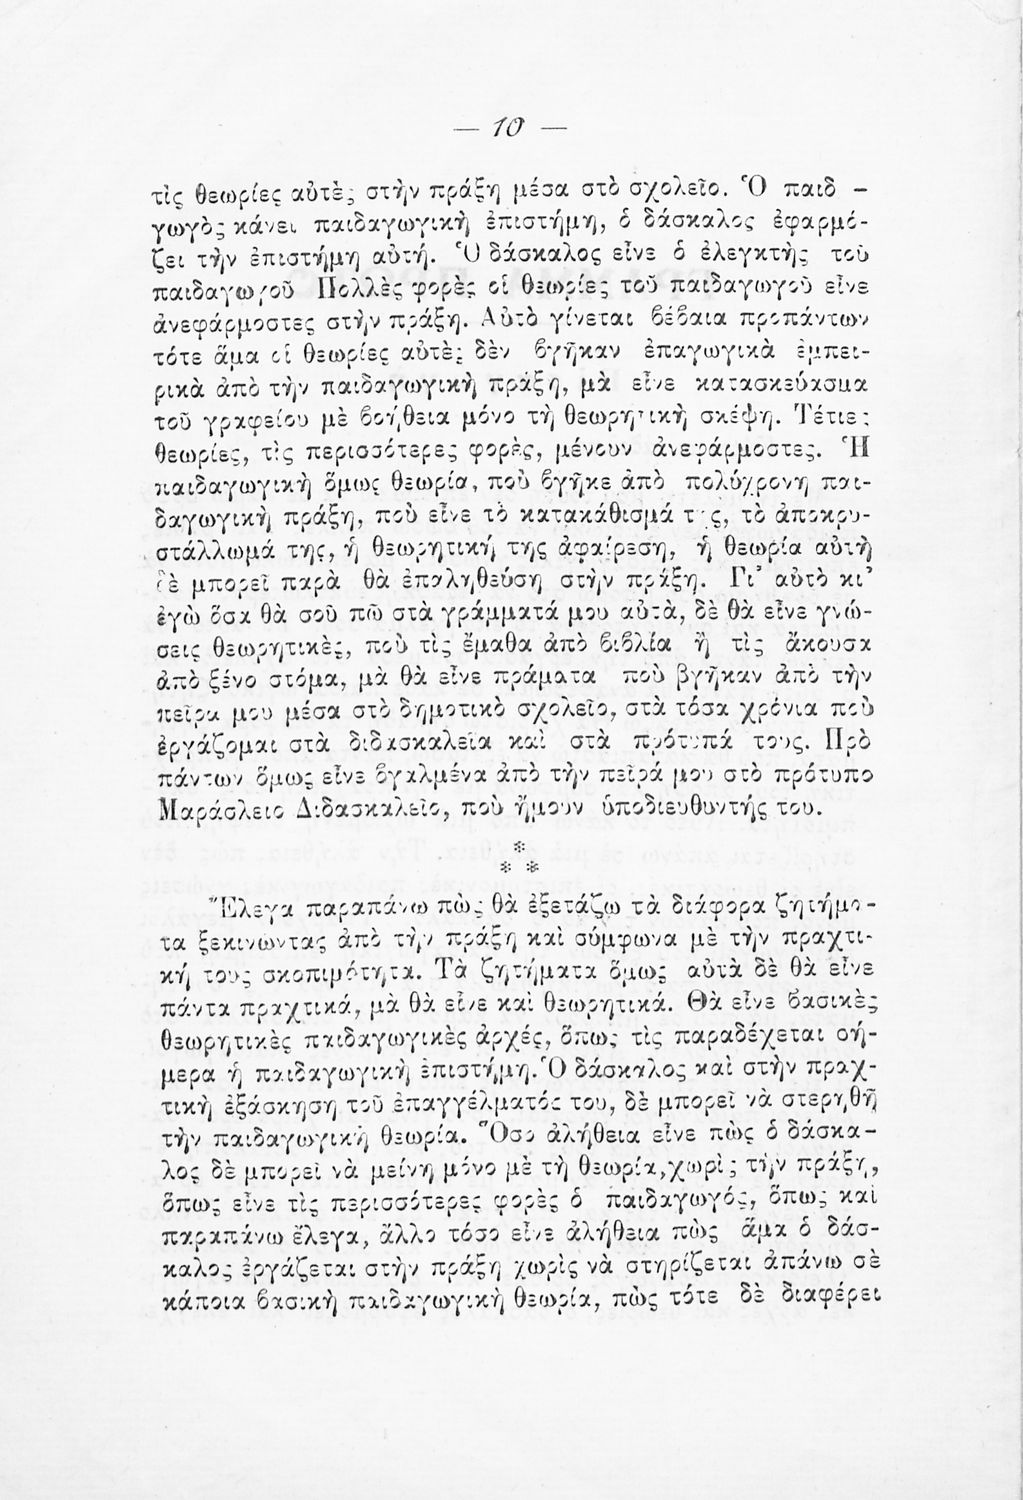 — 10 —
τὶς θεωρίες αὐτὲς στὴν πράξη μέσα στὸ σχολεῖο. Ὁ παιδ -
γωγὸς κάνει παιδαγωγικὴ ἐπιστήμη, ὁ δάσκαλος ἐφαρμό-
ζει τὴν ἐπιστήμη αὐτή. Ὁ δάσκαλος εἶνε ὁ ἐλεγκτὴς τοῦ
παιδαγωγοῦ Πολλὲς φορὲς οἱ θεωρίες τοῦ παιδαγωγοῦ εἶνε
ἀνεφάρμοστες στὴν πράξη. Αὐτὸ γίνεται βέβαια προπάντων
τότε ἅμα οἱ θεωρίες αὐτὲς δὲν βγῆκαν ἐπαγωγικὰ ἐμπει-
ρικὰ ἀπὸ τὴν παιδαγωγικὴ πράξη, μὰ εἶνε κατασκεύασμα
τοῦ γραφείου μὲ βοήθεια μόνο τὴ θεωρητικὴ σκέψη. Τέτιες
θεωρίες, τὶς περισσότερες φορές, μένουν ἀνεφάρμοστες. Ἡ
παιδαγωγικὴ ὅμως θεωρία, ποὺ βγῆκε ἀπὸ πολύχρονη παι-
δαγωγικὴ πράξη, ποὺ εἶνε τὸ κατακάθισμά της, τὸ ἀποκρυ-
στάλλωμά της, ἡ θεωρητική της ἀφαίρεση, ἡ θεωρία αὐτὴ
δὲ μπορεῖ παρὰ θὰ ἐπαληθεύση στὴν πράξη. Γι' αὐτὸ κι'
ἐγὼ ὅσα θὰ σοῦ πῶ στὰ γράμματά μου αὐτὰ, δὲ θὰ εἶνε γνώ-
σεις θεωρητικὲς, ποὺ τὶς ἔμαθα ἀπὸ βιβλία ἢ τὶς ἄκουσα
ἀπὸ ξένο στόμα, μὰ θὰ εἶνε πράματα ποὺ βγῆκαν ἀπὸ τὴν
πεῖρα μου μέσα στὸ δημοτικὸ σχολεῖο, στὰ τόσα χρόνια ποὺ
ἐργάζομαι στὰ διδασκαλεῖα καὶ στὰ πρότυπά τους. Πρὸ
πάντων ὅμως εἶνε βγαλμένα ἀπὸ τὴν πεῖρά μου στὸ πρότυπο
Μαράσλειο Διδασκαλεῖο, ποὺ ἤμουν ὑποδιευθυντής του.
*
* *
Ἔλεγα παραπάνω πὼς θὰ ἐξετάζω τὰ διάφορα ζητήμα-
τα ξεκινώντας ἀπὸ τὴν πράξη καὶ σύμφωνα μὲ τὴν πραχτι-
κή τους σκοπιμότητα. Τὰ ζητήματα ὅμως αὐτὰ δὲ θὰ εἶνε
πάντα πραχτικά, μὰ θὰ εἶνε καὶ θεωρητικά. Θὰ εἶνε βασικὲς
θεωρητικὲς παιδαγωγικὲς ἀρχές, ὅπως τὶς παραδέχεται σή-
μερα ἡ παιδαγωγικὴ ἐπιστήμη. Ὁ δάσκαλος καὶ στὴν πραχ-
τικὴ ἐξάσκηση τοῦ ἐπαγγέλματός του, δὲ μπορεῖ νὰ στερηθῆ
τὴν παιδαγωγικὴ θεωρία. Ὅσο ἀλήθεια εἶνε πὼς ὁ δάσκα-
λος δὲ μπορεῖ νὰ μείνη μόνο μὲ τὴ θεωρία, χωρὶς τὴν πράξη,
ὅπως εἶνε τὶς περισσότερες φορὲς ὁ παιδαγωγός, ὅπως καὶ
παραπάνω ἔλεγα, ἄλλο τόσο εἶνε ἀλήθεια πὼς ἅμα ὁ δάσ-
καλος ἐργάζεται στὴν πράξη χωρὶς νὰ στηρίζεται ἀπάνω σὲ
κάποια βασικὴ παιδαγωγικὴ θεωρία, πὼς τότε δὲ διαφέρει